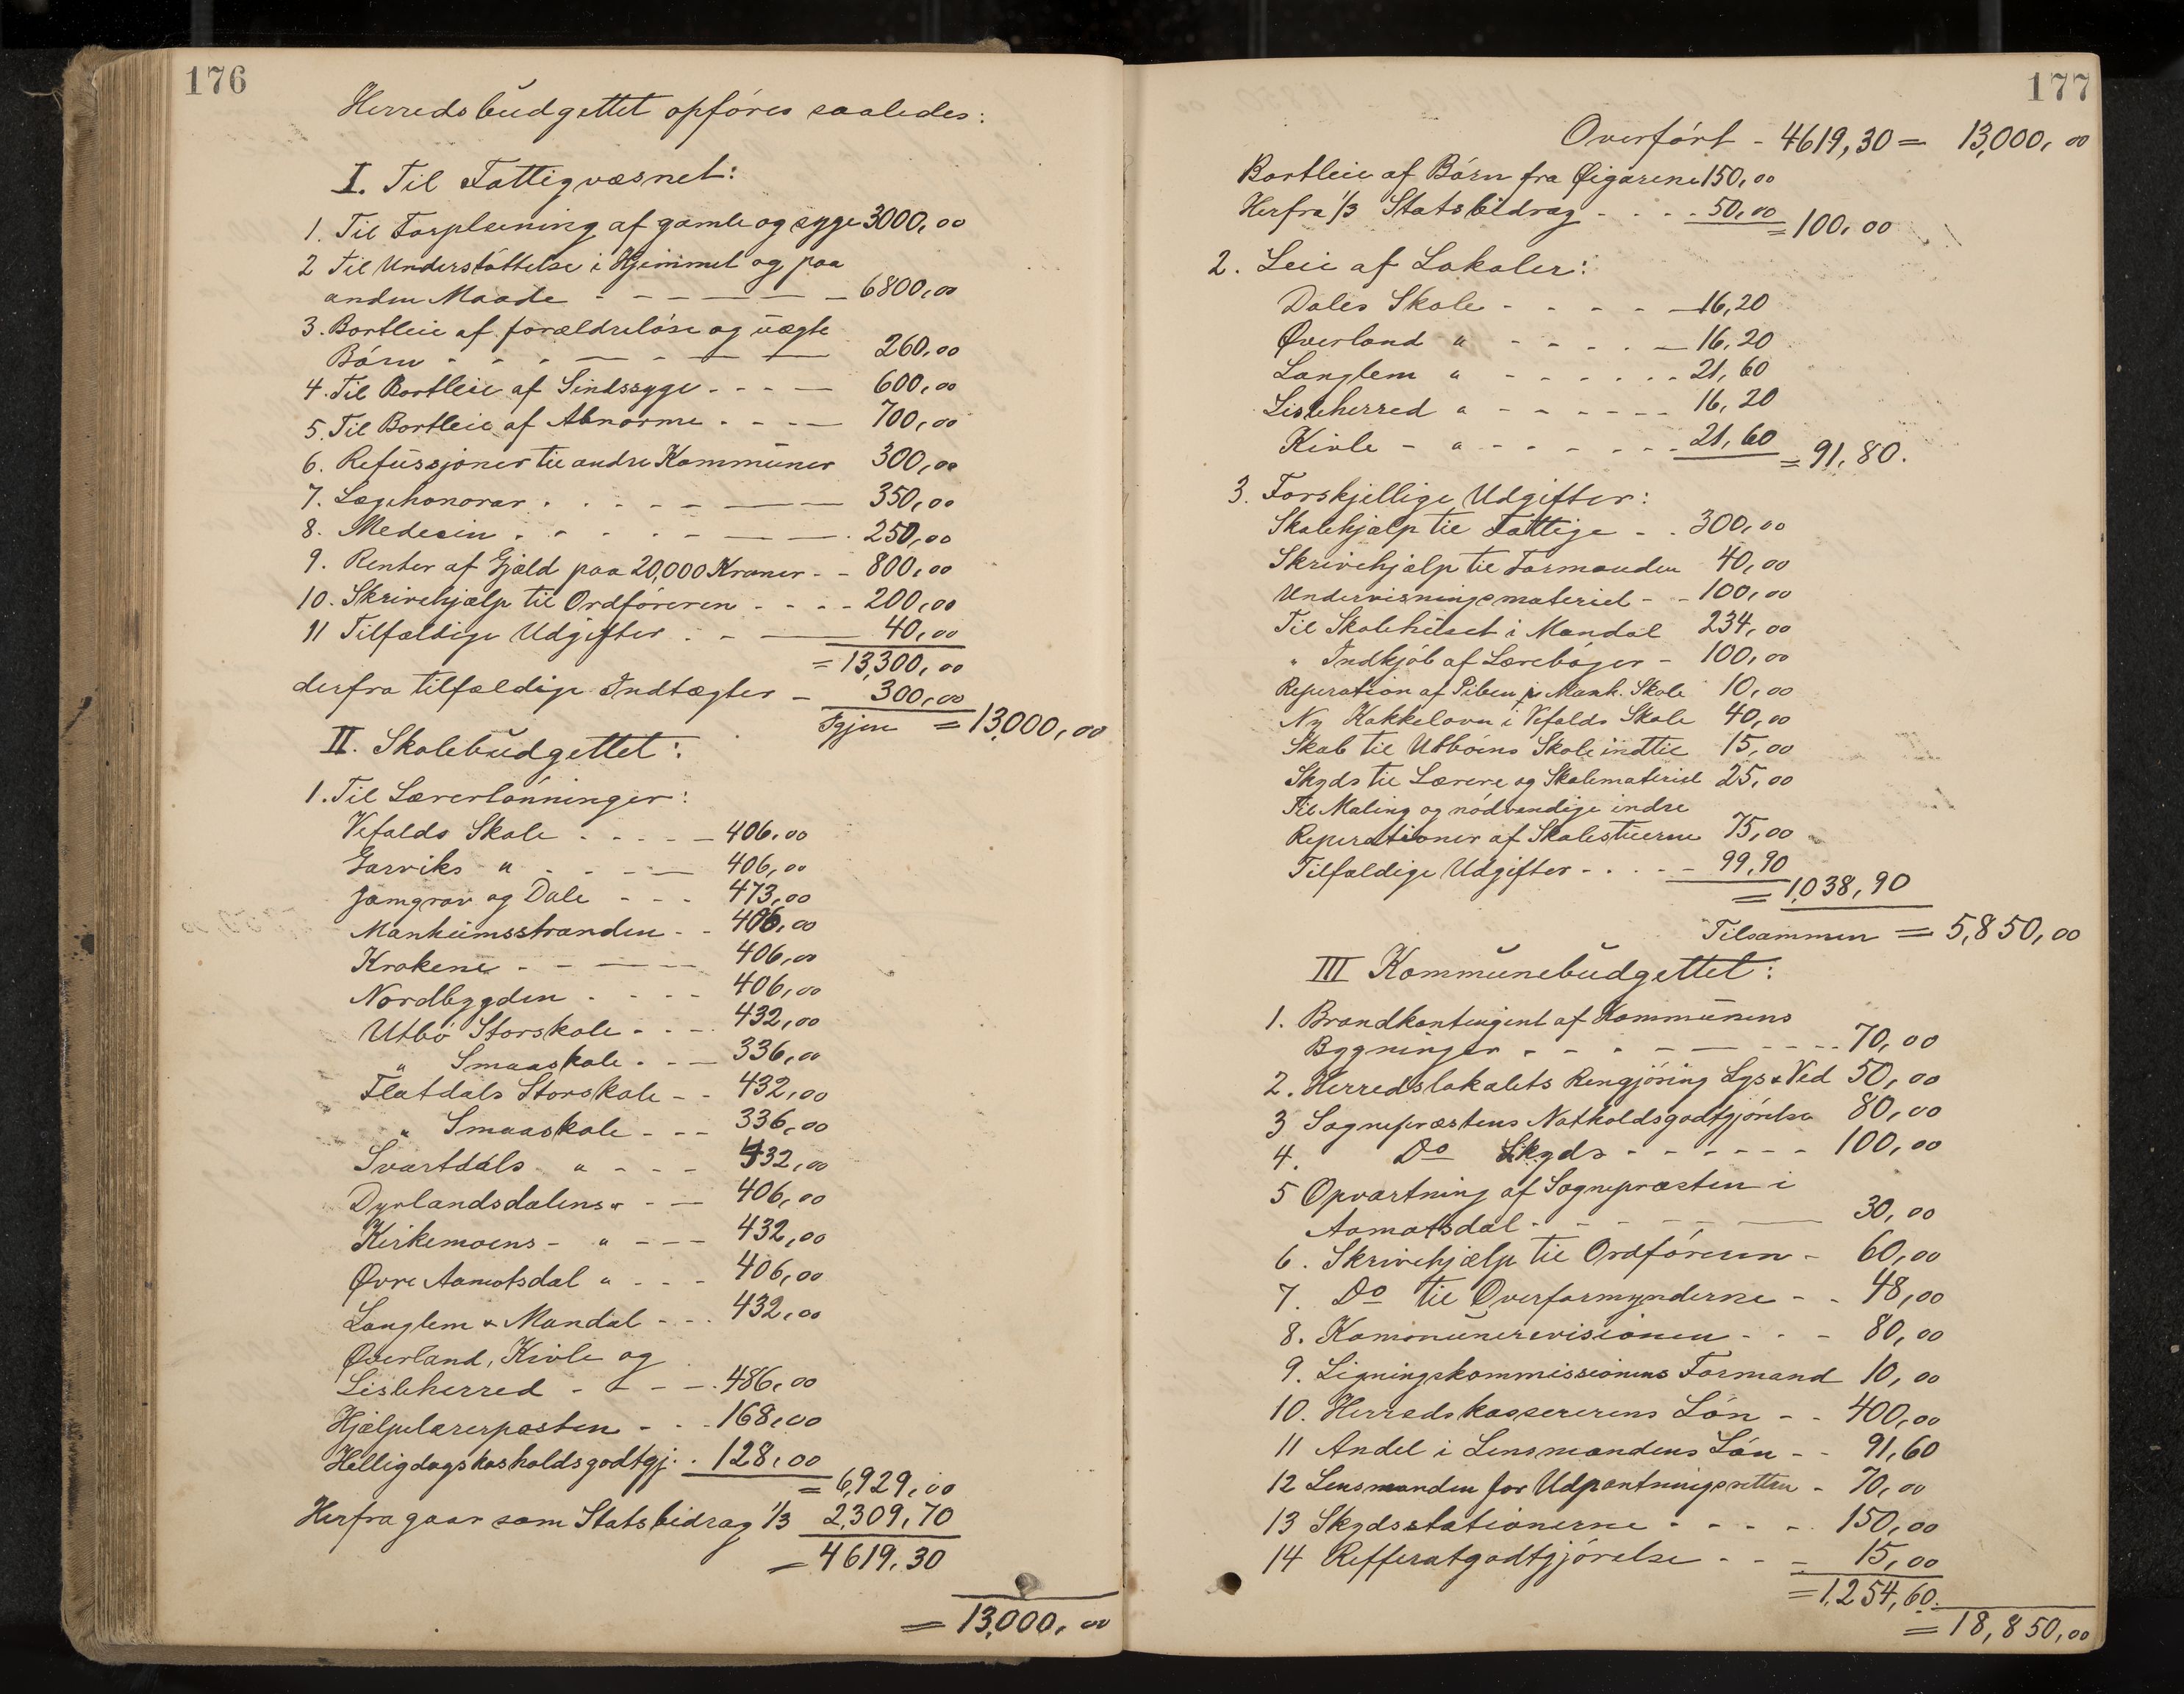 176
Herredsbudgettet opføres saaledes:
I. Til Fattigvæsnet:
1. Til Forpleining af gamle og syge 3000,00
2 Til Understøttelse i Hjemmet og paa
anden Maade - - - - - 6800,00
3. Bortleie af forældreløse og uægte
Børn - - - - - - 260,00
4. Til Bortleie af Sindssyge - - - - 600,00
5. Til Bortleie af Abnorme - - - - 700,00
6. Refussjoner til andre Kommuner 300,00
7. Lægehonorar - - - - - - 350,00
8. Medecin - - - - - - 250,00
9. Renter af Gjæld paa 20,000 Kroner - - 800,00
10. Skrivehjælp til Ordføreren - - - - 200,00
11 Tilfældige Udgifter - - - 40,00
= 13,300,00
derfra tilfældige Indtægter - 300,00
Igjen = 13,000,00
II. Skolebudgettet:
1. Til Lærerlønninger:
Vefalds Skole - - - - 406,00
Garviks " - - - - 406,00
Jamgrav og Dale - - - 473,00
Manheimsstranden - - 406,00
Krokene - - - - 406,00
Nordbygden - - - - 406,00
Utbø Storskole - - - 432,00
" Smaaskole - - - 336,00
Flatdals Storskole - - 432,00
" Smaaskole - - - 336,00
Svartdals " - - - 432,00
Dyrlandsdalens " - - 406,00
Kirkemoens - " - - - 432,00
Øvre Aamotsdal " - - - 406,00
Langlem & Mandal - - - 432,00
Øverland, Kivle og
Lisleherred - - - - 486,00
Hjælpelærerposten - - - 168,00
Helligdagskosholdsgodtgj. . 128,00
= 6,929,00
Herfra gaar som Statsbidrag 1/3 2,309,70
= 4619,30
= 13,000,00
177
Overført - 4619,30 = 13,000,00
Bortleie af Børn fra Øigarene 150,00
Herfra 1/3 Statsbidrag - - - - 50,00
= 100,00
2. Leie af Lokaler:
Dales Skole - - - - - 16,20
Øverland " - - - - - 16,20
Langlem " - - - - - - 21,60
Lisleherred " - - - - - - 16,20
Kivle - " - - - - - - 21,60
= 91,80.
3. Forskjellige Udgifter:
Skolehjælp til Fattige - - 300,00
Skrivehjælp til Formanden 40,00
Undervisningsmateriel - - 100,00
Til Skolehuset i Mandal 234,00
" Indkjøb af Lærebøger - 100,00
Reperation af Piben i Manh. Skole 10,00
Ny Kakkelovn i Vefalds Skole 40,00
Skab til Utbøens Skole indtil 15,00
Skyds til Lærere og Skolemateriel 25,00
Til Maling og nødvendige indre
Reperationer af Skolestuerne 75,00
Tilfældige Udgifter - - - - 99,90
= 1,038,90
Tilsammen = 5,850,00
III Kommunebudgettet:
1. Brandkontingent af Kommunens
Bygninger - - - - - - - 70,00
2. Herredslokalets Rengjøring Lys & Ved 50,00
3 Sognepræstens Natholdsgodtgjørelse 80,00
4. Do Skyds - - - - - - 100,00
5 Opvartning af Sognepræsten i
Aamotsdal - - - - - - 30,00
6. Skrivehjælp til Ordføreren - 60,00
7. Do til Overformynderne - - 48,00
8. Kommunerevisionen - - - 80,00
9. Ligningskommissionens Formand 10,00
10. Herredskassererens Løn - - 400,00
11 Andel i Lensmandens Løn - - 91,60
12 Lensmanden for Udpantningsretten - 70,00
13 Skydsstationerne - - - - - 150,00
14 Refferatgodtgjørelse - - - 15,00
= 1,254,60.
= 18,850,00